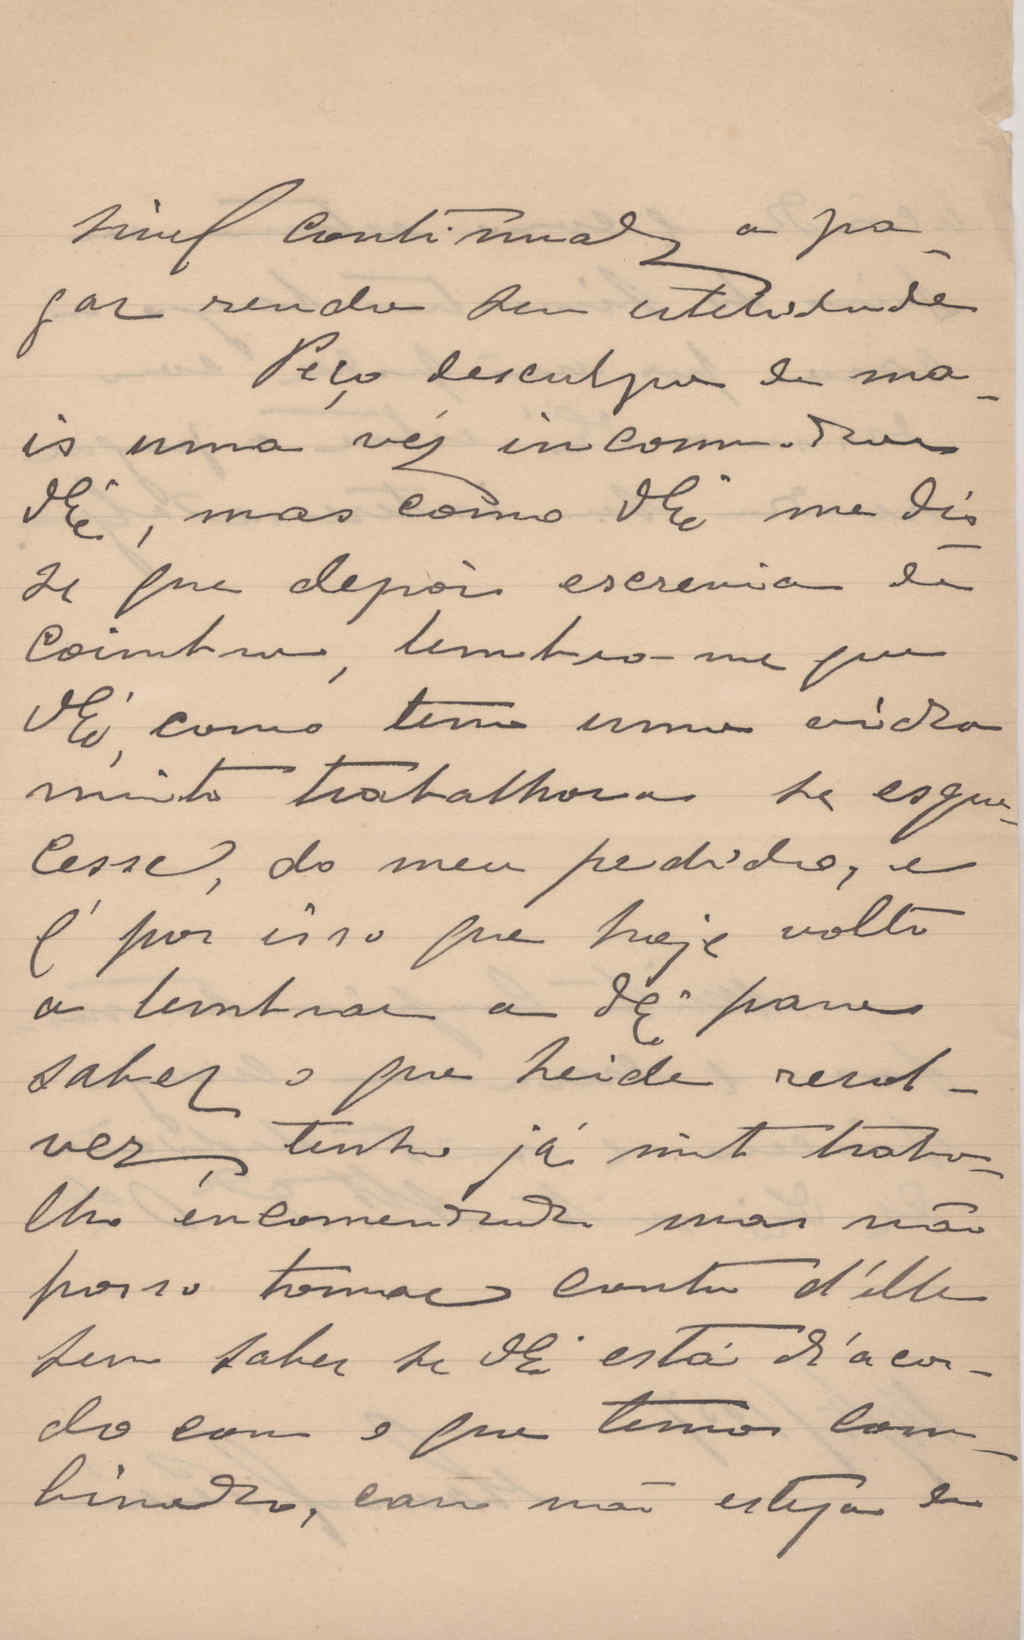 sivel continuar a pa-
gar renda sem utelidade
Peço desculpa de ma-
is uma véz incommodar
VEx.ª, mas como VEx.ª me dis
se que depois escrevia de
Coimbra, lembro-me que
VEx.ª, como tem uma vida
muito trabalhosa se esque-
cesse, do meu pedido, e
é por isso que hoje volto
a lembrar a VEx.ª para
saber o que heide resol-
ver, tenho já muito traba-
lho encomendado mas não
posso tomar conta d'elle
sem saber se VEx.ª está d'acor-
do com o que temos com-
binado, caso não esteja de